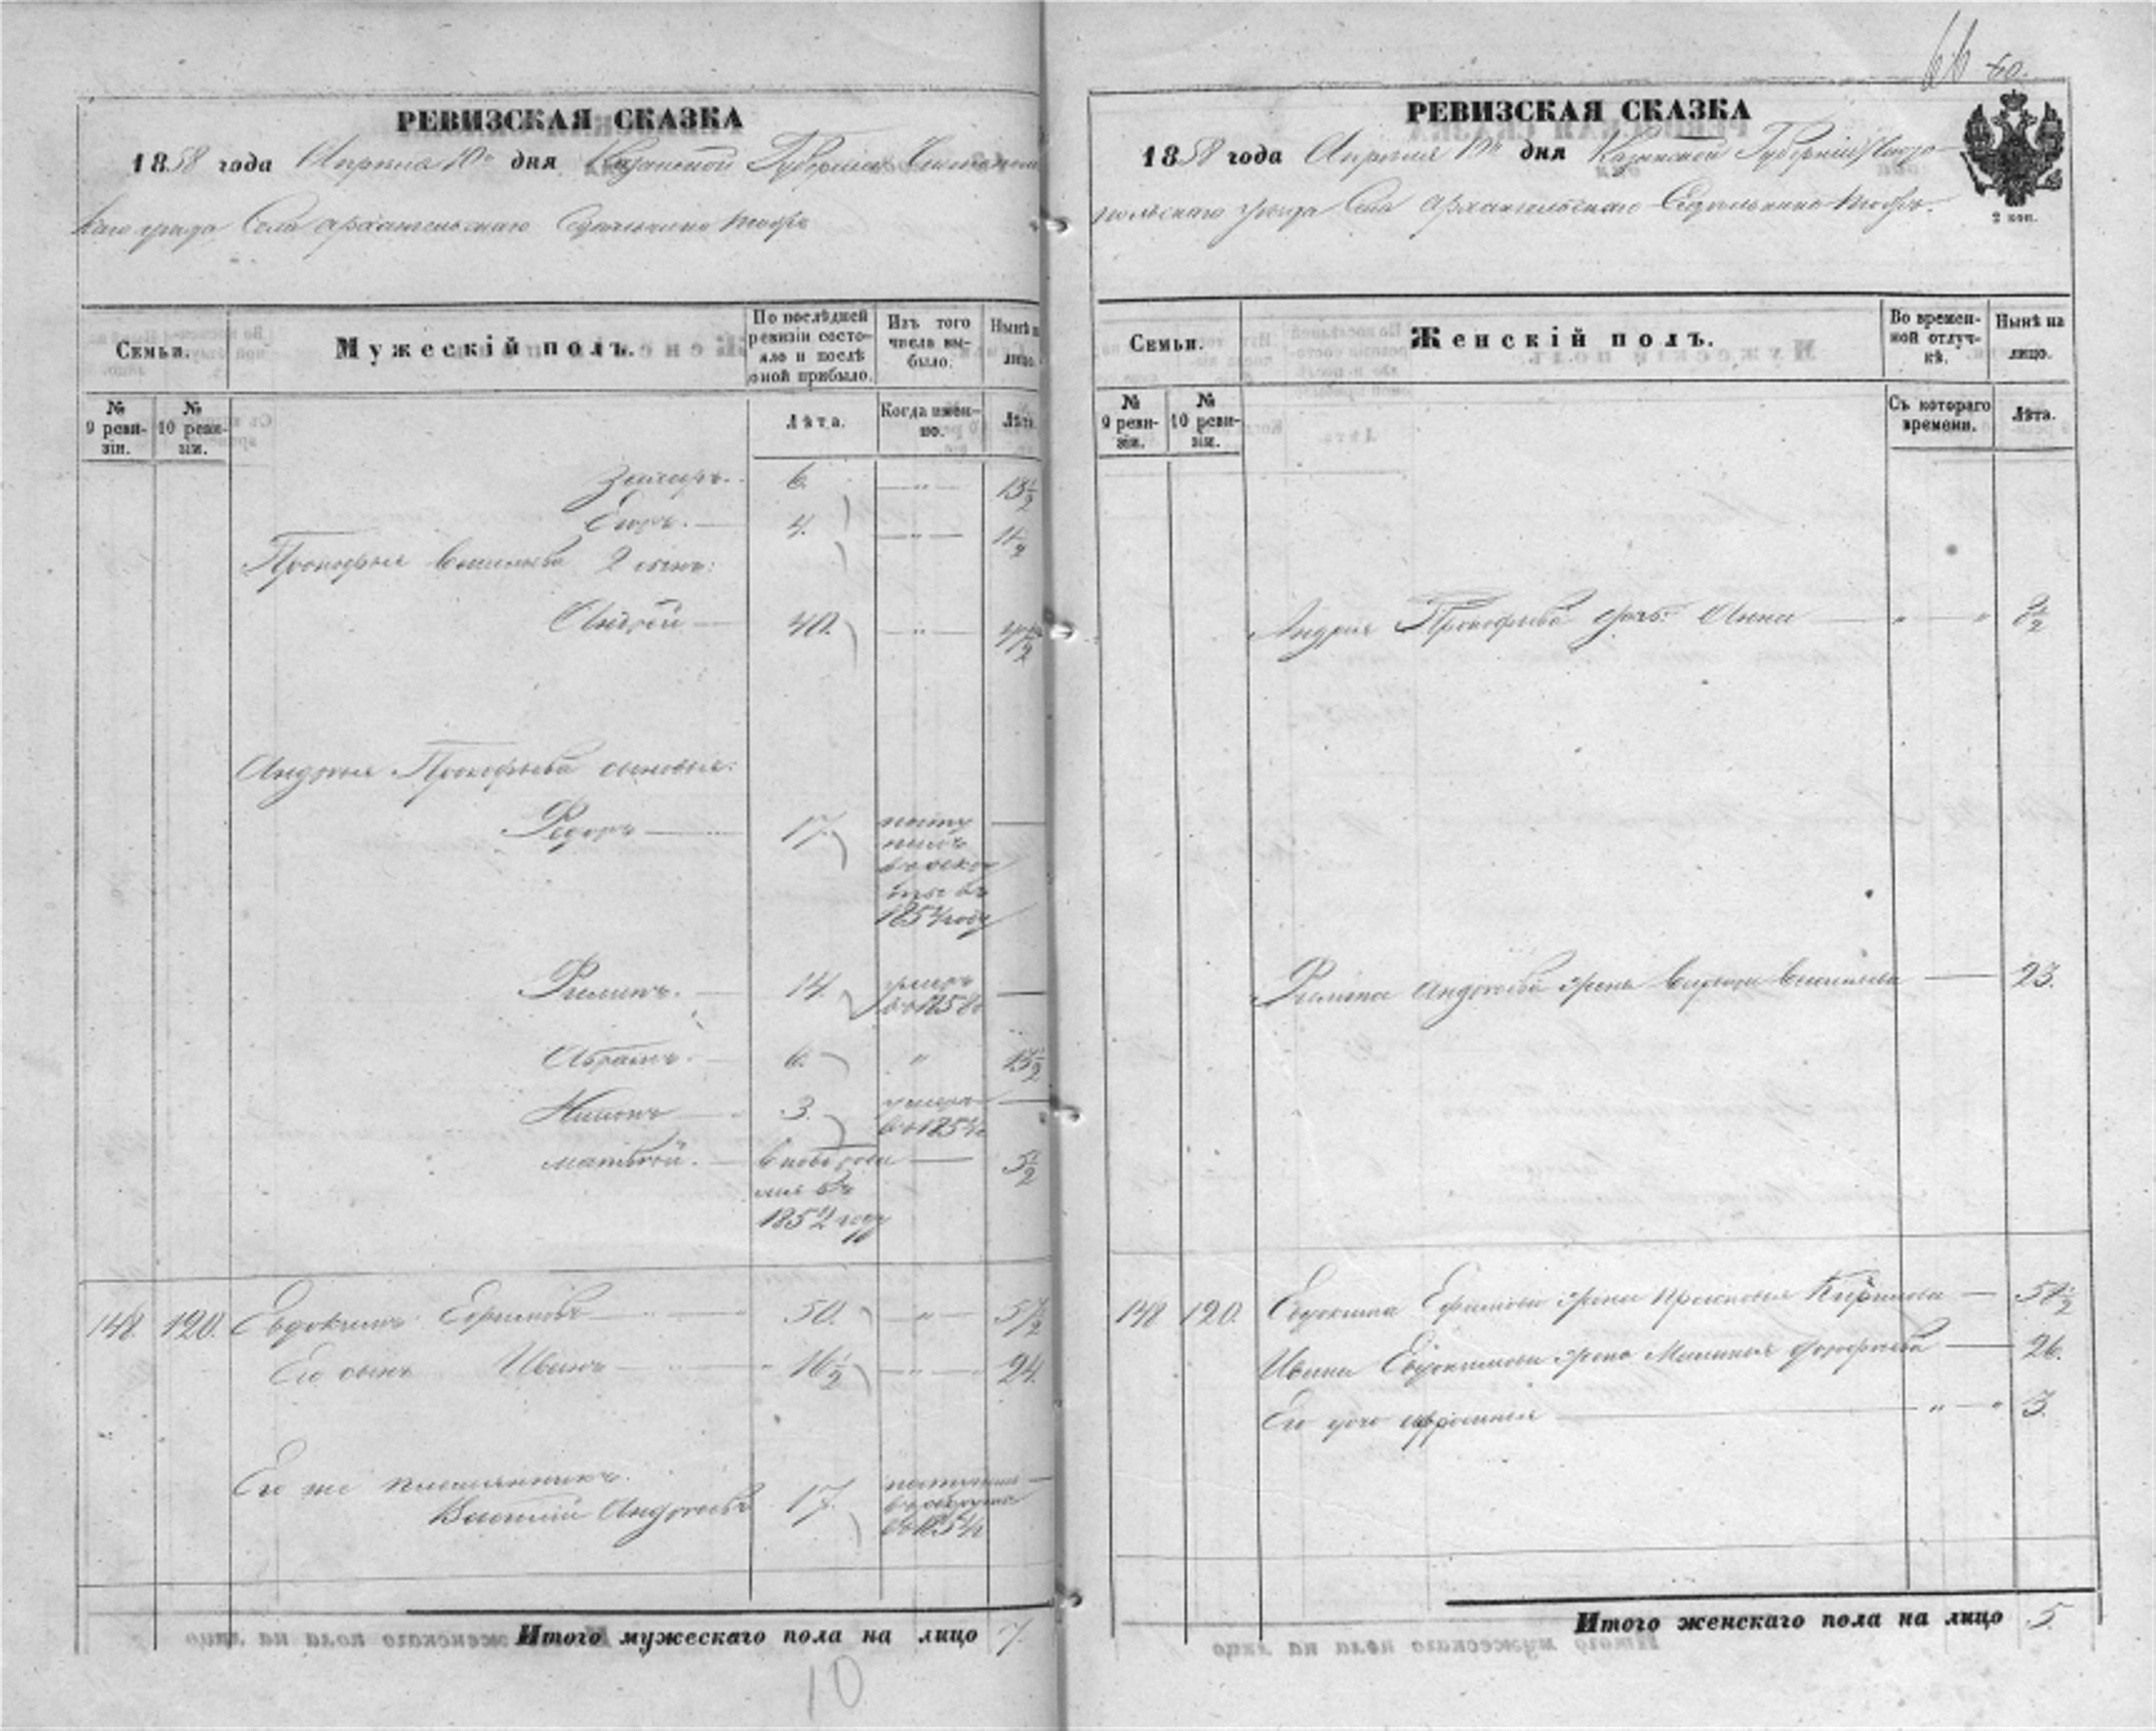 РЕВИЗСКАЯ СКАЗКА
1858 года Апреля 10го дня Казанской Губернии Чистополь
скаго уезда Села Архангельскаго
Семьи.
Мужескій полъ.
По послѣдней
ревизіи состо-
яло и послѣ
оной прибыло.
Изъ того
числа вы-
было.
Нынѣ н
лицо.
№
9 реви-
зіи.
№
10 реви-
зіи.
Лѣта.
Когда имен-
но.
Лѣта.
6. 13½
Егоръ. 4. 11½
Прокофья Васильева 2 сынъ:
Андрей 40. 47½
Андрея Прокофьева сыновья:
Федоръ 17.
1854 году
Филипъ. 14. умеръ
въ 185
Абрамъ. 6. " 13½
3. умеръ
въ 185
Матвей. вновь рож 5½
въ
1852 году
148. 120. Евдокимъ Ефимовъ 50. " 57½
Его сынъ Иванъ 16½ " 24.
Его же племянникъ.
Василій Андреевъ 17.
въ 1854
Итого мужескаго пола на лицо 7.
10
66 60.
РЕВИЗСКАЯ СКАЗКА
1858 года Апреля 10го дня Казанской Губернии Чисто-
польскаго уезда Села Архангельскаго
2 коп.
Семьи.
Женскій полъ.
Во времен-
ной отлуч-
кѣ.
Нынѣ на
лицо.
№
9 реви-
зіи.
№
10 реви-
зіи.
Съ котораго
времени.
Лѣта.
Андрея Прокофьева дочь: Анна " "
Филипа Андреева жена Васильева 23.
148 120. Евдокима Ефимова жена Прасковья 51½
Ивана Евдокимова жена 26.
Его дочь " " 3.
Итого женскаго пола на лицо 5.